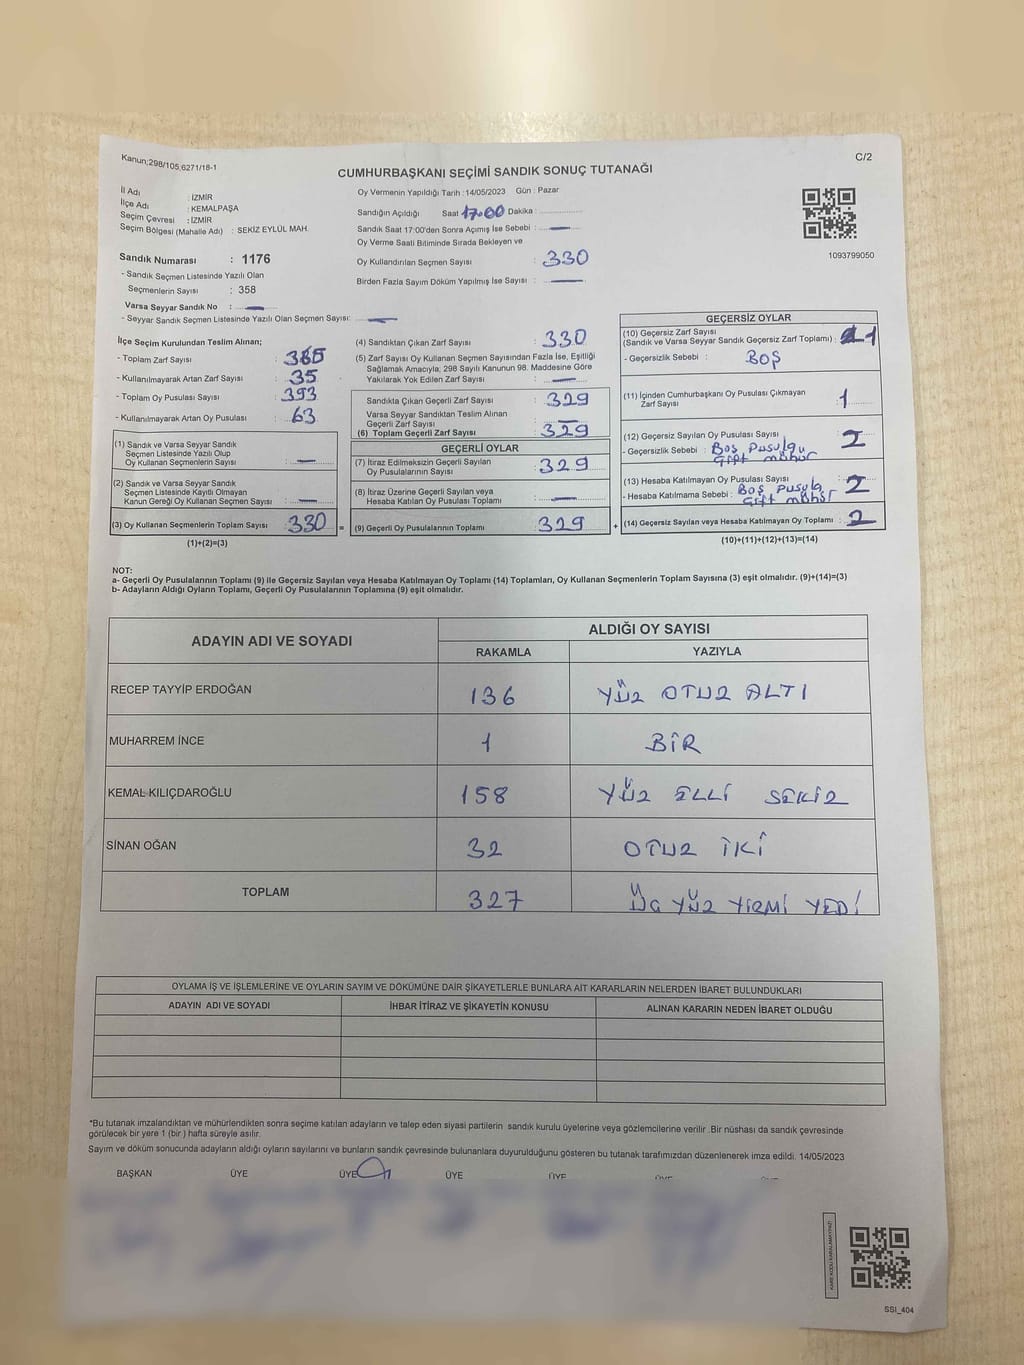 Kanun;298/105,6271/18-1
C/2
CUMHURBAŞKANI SEÇİMİ SANDIK SONUÇ TUTANAĞI
İl Adı : İZMİR
İlçe Adı : KEMALPAŞA
Seçim Çevresi : İZMİR
Seçim Bölgesi (Mahalle Adı) : SEKİZ EYLÜL MAH.
Sandık Numarası : 1176
- Sandık Seçmen Listesinde Yazılı Olan
Seçmenlerin Sayısı : 358
Varsa Seyyar Sandık No : —
- Seyyar Sandık Seçmen Listesinde Yazılı Olan Seçmen Sayısı: —
Oy Vermenin Yapıldığı Tarih : 14/05/2023 Gün : Pazar
Sandığın Açıldığı Saat 17.00 Dakika :
Sandık Saat 17:00'den Sonra Açımış İse Sebebi : —
Oy Verme Saati Bitiminde Sırada Bekleyen ve
Oy Kullandırılan Seçmen Sayısı : 330
Birden Fazla Sayım Döküm Yapılmış İse Sayısı : —
1093799050
İlçe Seçim Kurulundan Teslim Alınan;
- Toplam Zarf Sayısı : 365
- Kullanılmayarak Artan Zarf Sayısı : 35
- Toplam Oy Pusulası Sayısı : 393
- Kullanılmayarak Artan Oy Pusulası : 63
(1) Sandık ve Varsa Seyyar Sandık
Seçmen Listesinde Yazılı Olup
Oy Kullanan Seçmenlerin Sayısı : —
(2) Sandık ve Varsa Seyyar Sandık
Seçmen Listesinde Kayıtlı Olmayan
Kanun Gereği Oy Kullanan Seçmen Sayısı : —
(3) Oy Kullanan Seçmenlerin Toplam Sayısı : 330 =
(1)+(2)=(3)
(4) Sandıktan Çıkan Zarf Sayısı : 330
(5) Zarf Sayısı Oy Kullanan Seçmen Sayısından Fazla İse, Eşitliği
Sağlamak Amacıyla; 298 Sayılı Kanunun 98. Maddesine Göre
Yakılarak Yok Edilen Zarf Sayısı : —
Sandıkta Çıkan Geçerli Zarf Sayısı : 329
Varsa Seyyar Sandıktan Teslim Alınan
Geçerli Zarf Sayısı : —
(6) Toplam Geçerli Zarf Sayısı : 329
GEÇERLİ OYLAR
(7) İtiraz Edilmeksizin Geçerli Sayılan
Oy Pusulalarının Sayısı : 329
(8) İtiraz Üzerine Geçerli Sayılan veya
Hesaba Katılan Oy Pusulası Toplamı : —
(9) Geçerli Oy Pusulalarının Toplamı : 329 +
GEÇERSİZ OYLAR
(10) Geçersiz Zarf Sayısı
(Sandık ve Varsa Seyyar Sandık Geçersiz Zarf Toplamı) : 1
- Geçersizlik Sebebi : BOŞ
(11) İçinden Cumhurbaşkanı Oy Pusulası Çıkmayan
Zarf Sayısı : 1
(12) Geçersiz Sayılan Oy Pusulası Sayısı : 2
- Geçersizlik Sebebi : Boş Pusula
Çift mühür
(13) Hesaba Katılmayan Oy Pusulası Sayısı : 2
- Hesaba Katılmama Sebebi : Boş Pusula
Çift mühür
(14) Geçersiz Sayılan veya Hesaba Katılmayan Oy Toplamı : 2
(10)+(11)+(12)+(13)=(14)
NOT:
a- Geçerli Oy Pusulalarının Toplamı (9) ile Geçersiz Sayılan veya Hesaba Katılmayan Oy Toplamı (14) Toplamları, Oy Kullanan Seçmenlerin Toplam Sayısına (3) eşit olmalıdır. (9)+(14)=(3)
b- Adayların Aldığı Oyların Toplamı, Geçerli Oy Pusulalarının Toplamına (9) eşit olmalıdır.
ADAYIN ADI VE SOYADI ALDIĞI OY SAYISI
RAKAMLA YAZIYLA
RECEP TAYYİP ERDOĞAN 136 YÜZ OTUZ ALTI
MUHARREM İNCE 1 BİR
KEMAL KILIÇDAROĞLU 158 YÜZ ELLİ SEKİZ
SİNAN OĞAN 32 OTUZ İKİ
TOPLAM 327 ÜÇ YÜZ YİRMİ YEDİ
OYLAMA İŞ VE İŞLEMLERİNE VE OYLARIN SAYIM VE DÖKÜMÜNE DAİR ŞİKAYETLERLE BUNLARA AİT KARARLARIN NELERDEN İBARET BULUNDUKLARI
ADAYIN ADI VE SOYADI İHBAR İTİRAZ VE ŞİKAYETİN KONUSU ALINAN KARARIN NEDEN İBARET OLDUĞU
*Bu tutanak imzalandıktan ve mühürlendikten sonra seçime katılan adayların ve talep eden siyasi partilerin sandık kurulu üyelerine veya gözlemcilerine verilir .Bir nüshası da sandık çevresinde
görülecek bir yere 1 (bir ) hafta süreyle asılır.
Sayım ve döküm sonucunda adayların aldığı oyların sayılarını ve bunların sandık çevresinde bulunanlara duyurulduğunu gösteren bu tutanak tarafımızdan düzenlenerek imza edildi. 14/05/2023
BAŞKAN ÜYE ÜYE ÜYE ÜYE ÜYE
KARE KODU KARALAMAYINIZ!
SSI_404